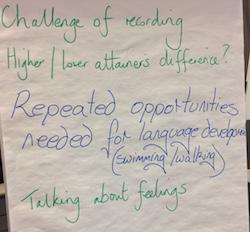 Challenge of recording
Higher / lower attainers difference?
Repeated opportunities
needed for language develop
(swimming / walking)
Talking about feelings